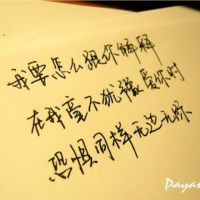 我要怎么跟你解释
在我毫不犹豫爱你时
恐惧同样无边无际
Payan